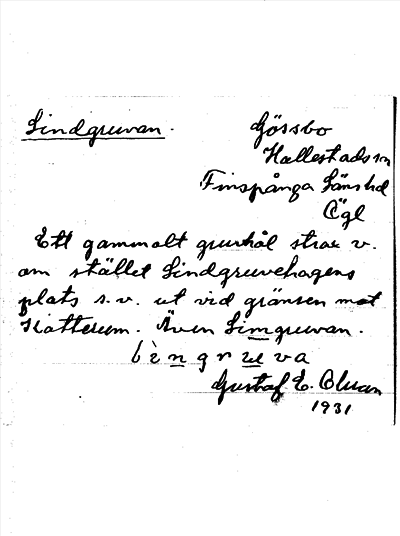 Lindgruvan.
Gössbo
Hällestads sn
Finspånga Länshd
Ögl
Ett gammalt gruvhål strax v.
om stället Lindgruvehagens
plats s.v. ut vid gränsen mot
Katterum. Även Limgruvan.
Gustaf E. 
1931